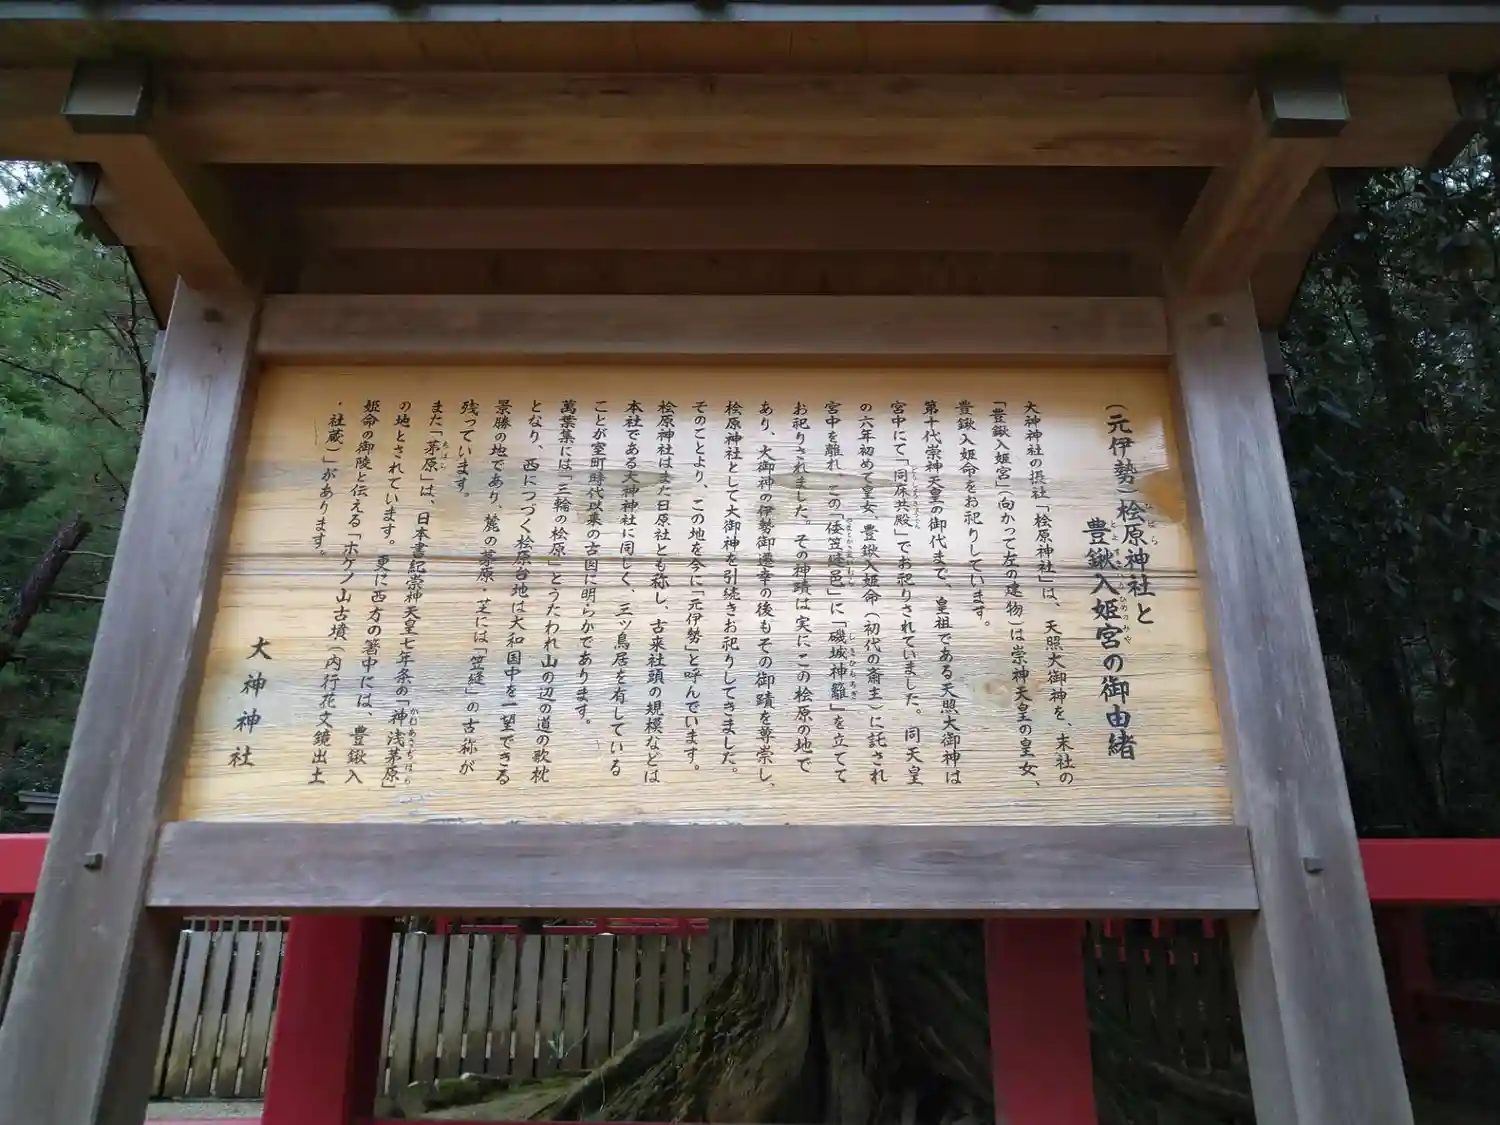 (元伊勢)桧原神社と
豊鍬入姫宮の御由緒
大神神社の摂社「桧原神社」は、天照大御神を、末社の
「豊鍬入姫宮」(向かって左の建物)は崇神天皇の皇女、
豊鍬入姫命をお祀りしています。
第十代崇神天皇の御代まで、皇祖である天照大御神は
宮中にて「同床共殿」でお祀りされていました。同天皇
の六年初めて皇女、豊鍬入姫命(初代の斎主)に託され
宮中を離れ、この「倭笠縫邑」に「磯城神籬」を立てて
お祀りされました。その神蹟は実にこの桧原の地で
あり、大御神の伊勢御遷幸の後もその御蹟を尊崇し、
桧原神社として大御神を引続きお祀りしてきました。
そのことより、この地を今に「元伊勢」と呼んでいます。
桧原神社はまた日原社とも称し、古来社頭の規模などは
本社である大神神社に同じく、三ツ鳥居を有している
ことが室町時代以来の古図に明らかであります。
萬葉集には「三輪の桧原」とうたわれ山の辺の道の歌枕
となり、西につづく桧原台地は大和国中を一望できる
景勝の地であり、麓の茅原・芝には「笠縫」の古称が
残っています。
また「茅原」は、日本書紀崇神天皇七年条の「神浅茅原」
の地とされています。更に西方の箸中には、豊鍬入
姫命の御陵と伝える「ホケノ山古墳(内行花文鏡出土
・社蔵)」があります。
大神神社